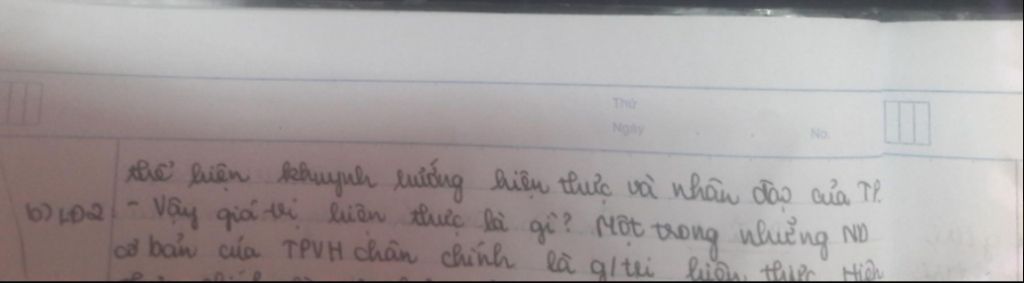 Thứ
Ngày No.
thể hiện khuynh hướng hiện thực và nhân đạo của TP.
b) LĐ2 - Vậy giá trị hiện thực là gì? Một trong những ND
cơ bản của TPVH chân chính là g/trị hiện thực. Hiện